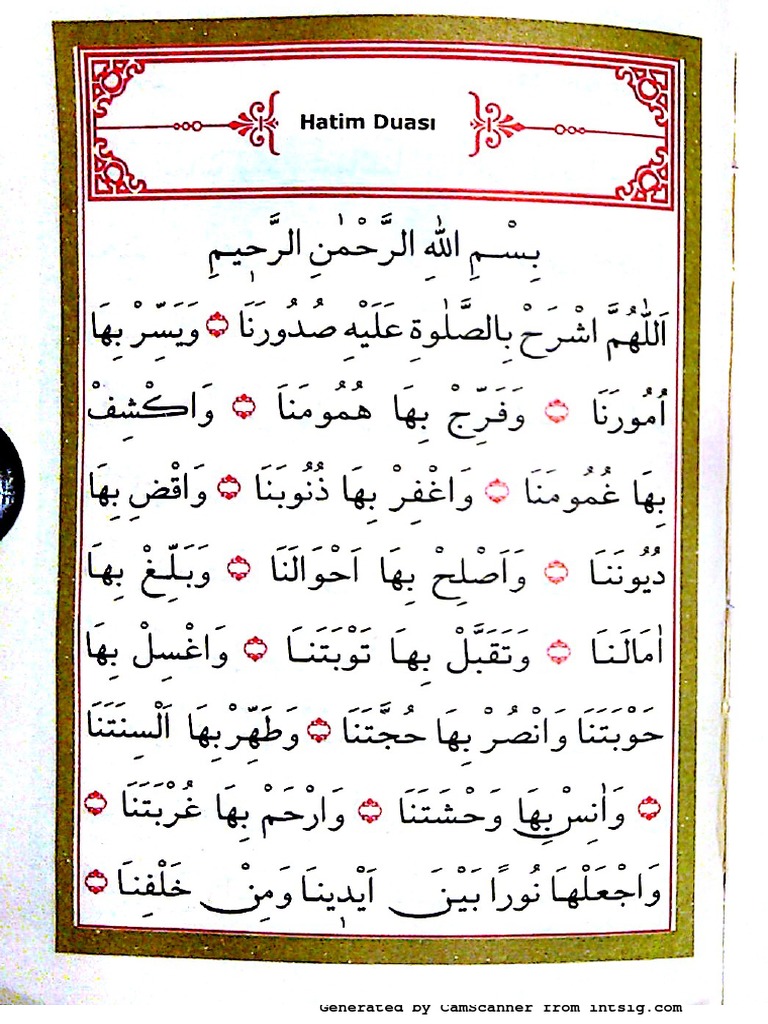 Hatim Duası
بِسْمِ اللهِ الرَّحْمٰنِ الرَّحٖيمِ
اَللّٰهُمَّ اشْرَحْ بِالصَّلٰوةِ عَلَيْهِ صُدُورَنَا ۞ وَيَسِّرْ بِهَا
اُمُورَنَا ۞ وَفَرِّجْ بِهَا هُمُومَنَا ۞ وَاكْشِفْ
بِهَا غُمُومَنَا ۞ وَاغْفِرْ بِهَا ذُنُوبَنَا ۞ وَاقْضِ بِهَا
دُيُونَنَا ۞ وَاَصْلِحْ بِهَا اَحْوَالَنَا ۞ وَبَلِّغْ بِهَا
اٰمَالَنَا ۞ وَتَقَبَّلْ بِهَا تَوْبَتَنَا ۞ وَاغْسِلْ بِهَا
حَوْبَتَنَا وَانْصُرْ بِهَا حُجَّتَنَا ۞ وَطَهِّرْ بِهَا اَلْسِنَتَنَا
۞ وَاٰنِسْ بِهَا وَحْشَتَنَا ۞ وَارْحَمْ بِهَا غُرْبَتَنَا ۞
وَاجْعَلْهَا نُورًا بَيْنَ اَيْدٖينَا وَمِنْ خَلْفِنَا ۞
Generated by CamScanner from intsig.com